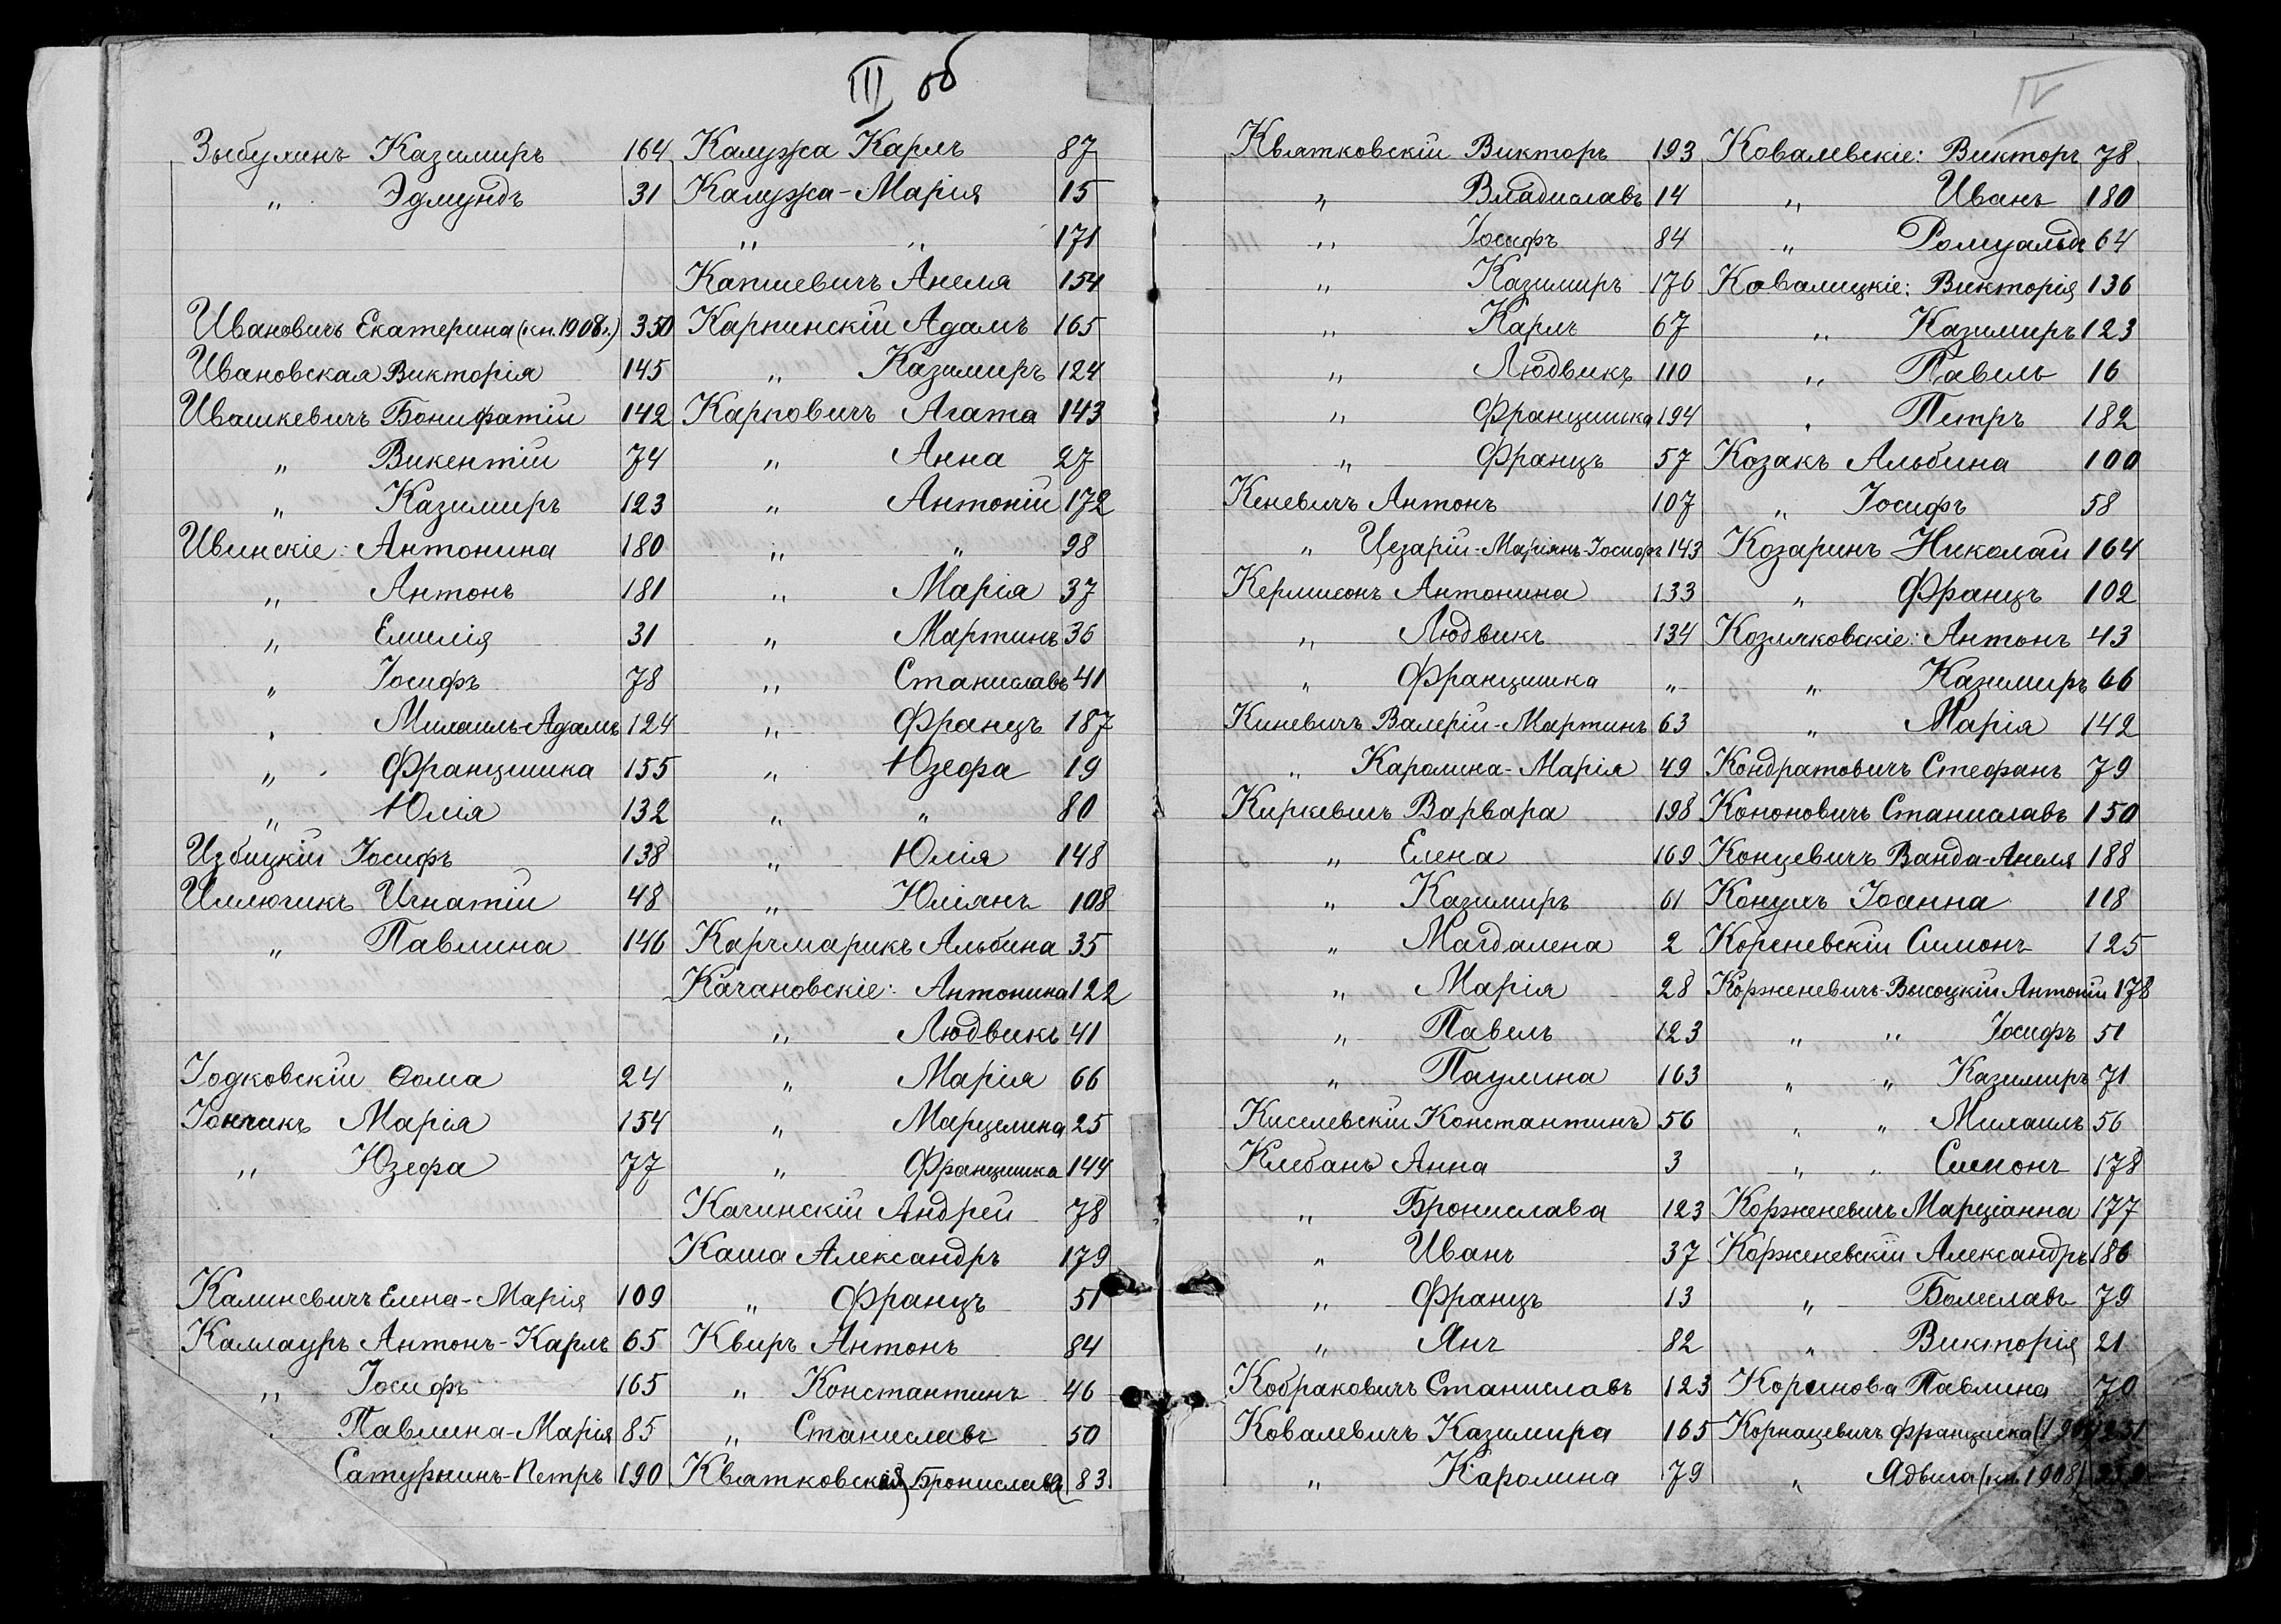 III об
Зыбулинъ Казимиръ 164
„ Эдмундъ 31
Ивановичъ Екатерина (кн. 1908г.) 350
Ивановская Викторія 145
Ивашкевичъ Бонифатій 142
„ Викентій 74
„ Казимиръ 123
Ивинскіе: Антонина 180
„ Антонъ 181
„ Емилія 31
„ Іосифъ 78
„ Михаилъ-Адамъ 124
„ Францишка 155
„ Юлія 132
Избицкій Іосифъ 138
Иллючикъ Игнатій 48
„ Павлина 146
Іодковскій Ѳома 24
Іончикъ Марія 154
„ Юзефа 77
Калиневичъ Елена-Марія 109
Каллауръ Антонъ-Карлъ 65
„ Іосифъ 165
„ Павлина-Марія 85
Сатурнинъ-Петръ 190
Калужа Карлъ 87
Калужа-Марія 15
„ „ 171
Капшевичъ Анеля 154
Карпинскій Адамъ 165
„ Казимиръ 124
Карповичъ Агата 143
„ Анна 27
„ Антоній 172
„ „ 98
„ Марія 37
„ Мартинъ 36
„ Станиславъ 41
„ Францъ 187
„ Юзефа 19
„ „ 80
„ Юлія 148
„ Юліянъ 108
Карчмарикъ Альбина 35
Качановскіе: Антонина 122
„ Людвикъ 41
„ Марія 66
„ Марцелина 25
„ Францишка 144
Качинскій Андрей 78
Каша Александръ 179
„ Францъ 51
Квиръ Антонъ 84
„ Константинъ 46
„ Станиславъ 50
Квятковская Бронислава 83.
IV
Квятковскій Викторъ 193
„ Владиславъ 14
„ Іосифъ 84
„ Казимиръ 176
„ Карлъ 67
„ Людвикъ 110
„ Францишка 194
„ Францъ 57
Кеневичъ Антонъ 107
„ Цезарій-Маріянъ-Іосифъ 143
Кермисонъ Антонина 133
„ Людвикъ 134
„ Францишка „
Киневичъ Валерій-Мартинъ 63
„ Каролина-Марія 49
Киркевичъ Варвара 198
„ Елена 169
„ Казимиръ 61
„ Магдалена 2
„ Марія 28
„ Павелъ 123
„ Паулина 163
Киселевскій Константинъ 56
Клебанъ Анна 3
„ Бронислава 123
„ Иванъ 37
„ Францъ 13
„ Янъ 82
Кобраковичъ Станиславъ 123
Ковалевичъ Казимира 165
„ Каролина 79
Ковалевскіе: Викторъ 78.
„ Иванъ 180
„ Ромуальдъ 64
Ковалицкіе: Викторія 136
„ Казимиръ 123
„ Павелъ 16
„ Петръ 182
Козакъ Альбина 100
„ Іосифъ 58
Козаринъ Николай 164
„ Францъ 102
Козляковскіе: Антонъ 43
„ Казимиръ 66
„ Марія 142
Кондратовичъ Стефанъ 79
Кононовичъ Станиславъ 150
Концевичъ Ванда-Анеля 188
Концулъ Іоанна 118
Кореневскій Симонъ 125
Корженевичъ-Высоцкій Антоній 178
„ „ Іосифъ 51
„ „ Казимиръ 71
„ „ Михаилъ 56
„ „ Симонъ 178
Корженевичъ Марціанна 177
Корженевскій Александръ 186
„ Болеславъ 79
„ Викторія 21
Коринова Павлина 70
Корнацевичъ Франциска
„ Ядвига (кн. 1908)